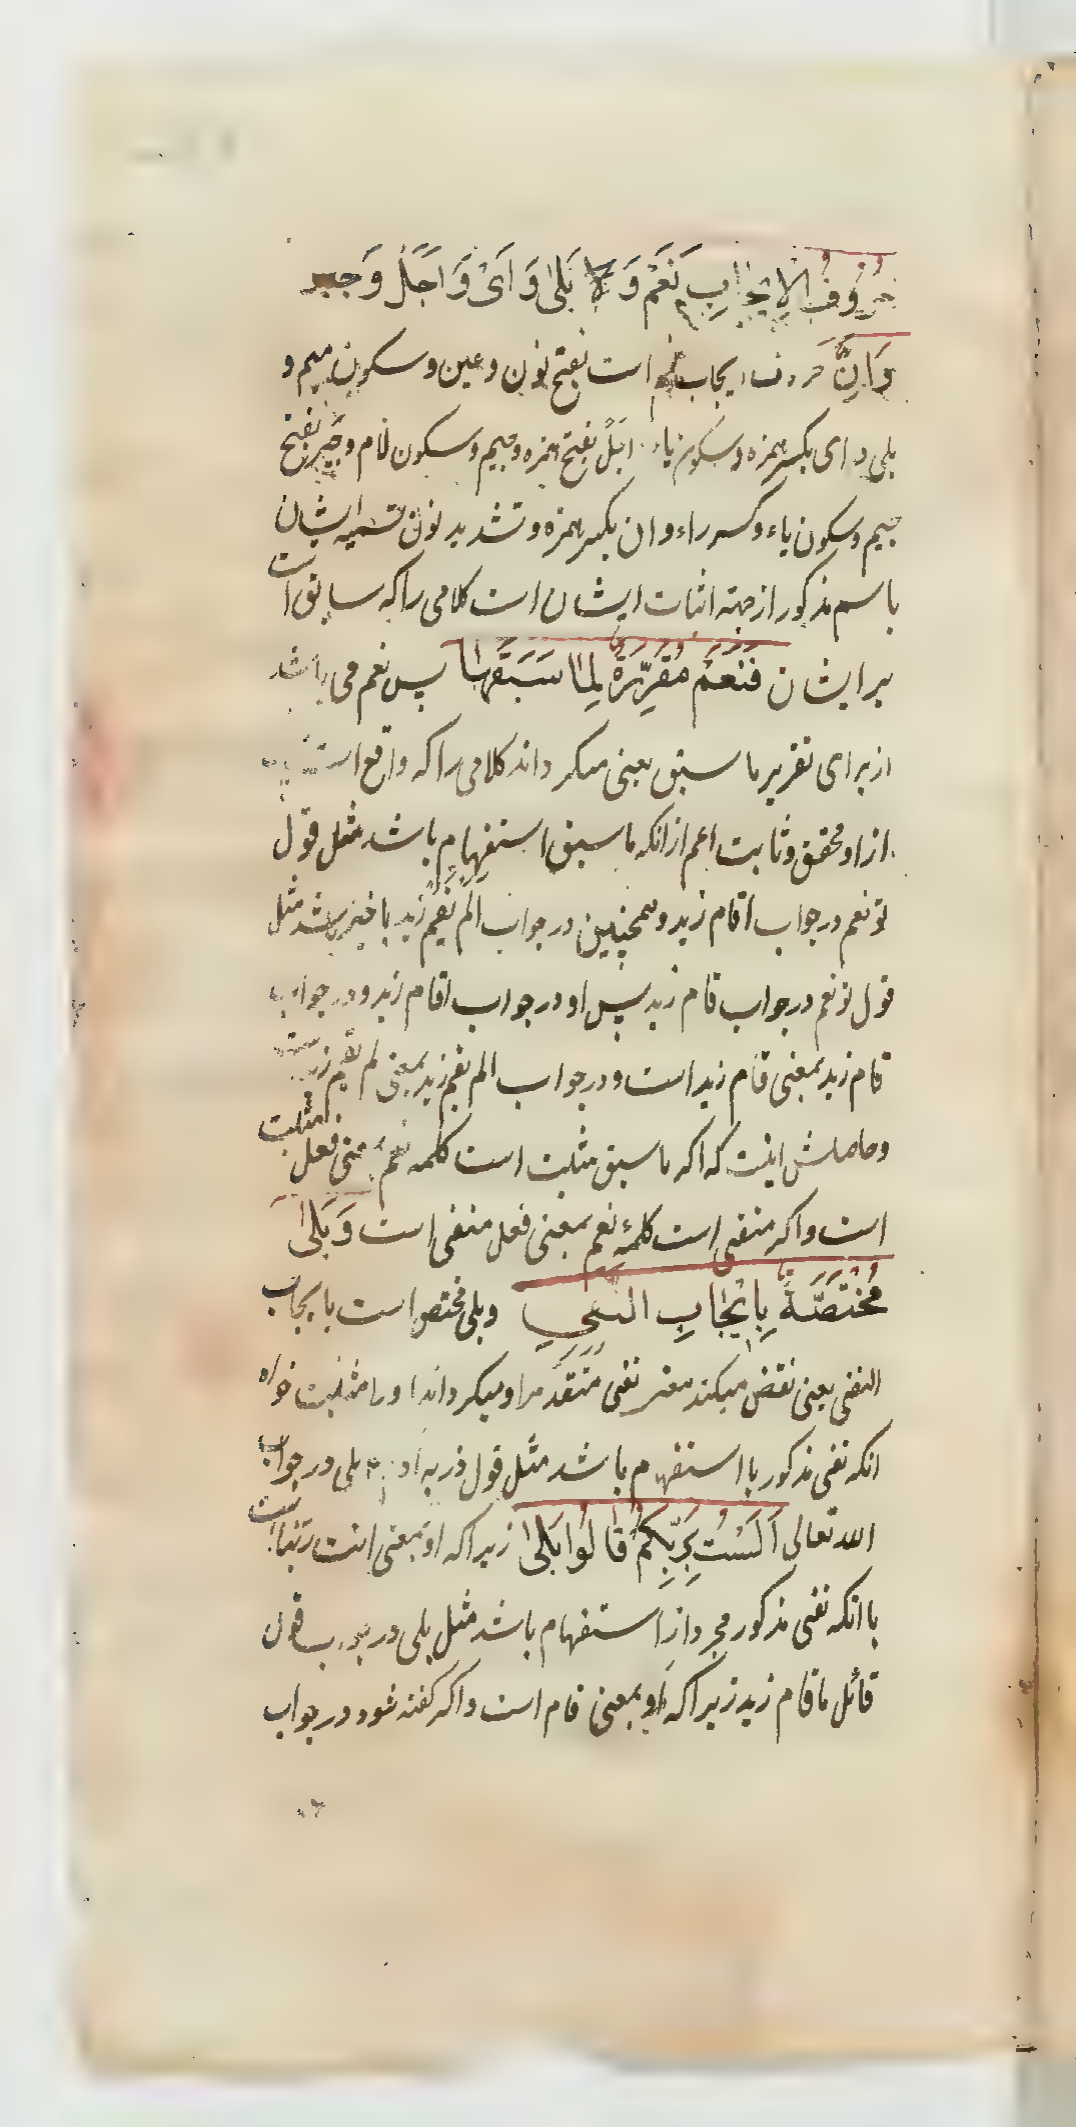 حُرُوفُ الْاِیجٰابِ نَعَمْ وَ بَلیٰ وَ اَیْ وَ اَجَلْ وَ جَیر
وَ اِنَّ حروف ایجاب نعم است بفتح نون و عین و سکون میم و
بلی و ای بکسر همزه و سکون یاء اجَلْ بفتح همزه و جیم و سکون لام و جَیر بفتح
جیم و سکون یاء و کسر راء و ان بکسر همزه و تشدید نون تسمیه ایشان
باسم مذکور از جهته اثبات ایشان است کلامی را که سابق است
بر ایشان فَنَعَمْ مُقَرِّرَةٌ لِمٰا سَبَقَهٰا پس نعم می باشد
از برای تقریر ما سبق یعنی میکرداند کلامی را که واقع است
از او محقق و ثابت اعم از انکه ما سبق استفهام باشد مثل قول
تو نعم در جواب اقام زید و همچنین در جواب الم یقم زید یا خبر باشد مثل
قول تو نعم در جواب قام زید پس او در جواب اقام زید و در جواب
قام زید بمعنی قام زید است و در جواب الم یقم زید بمعنی لم یقم زید
و حاصلش اینت که اکر ما سبق مثبت است کلمه نعم بمعنی فعل مثبت
است و اکر منفی است کلمهٔ نعم بمعنی فعل منفی است وَ بَلیٰ
مُخْتَصَّةٌ بِایْجٰابِ النَّفیِ و بلی مختص است بایجاب
النفی یعنی نقض میکند نفی متقدم را و میکرداند او را مثبت خواه
انکه نفی مذکور با استفهام باشد مثل قول بلی در جواب
الله تعالی اَلَسْتُ بِرَبِّکُمْ قٰالُوا بَلیٰ زیرا که او بمعنی انت ربنا است
یا انکه نفی مذکور مجرد از استفهام باشد مثل بلی در جواب قول
قائل ما قام زید زیرا که او بمعنی قام است و اکر کفته شود در جواب